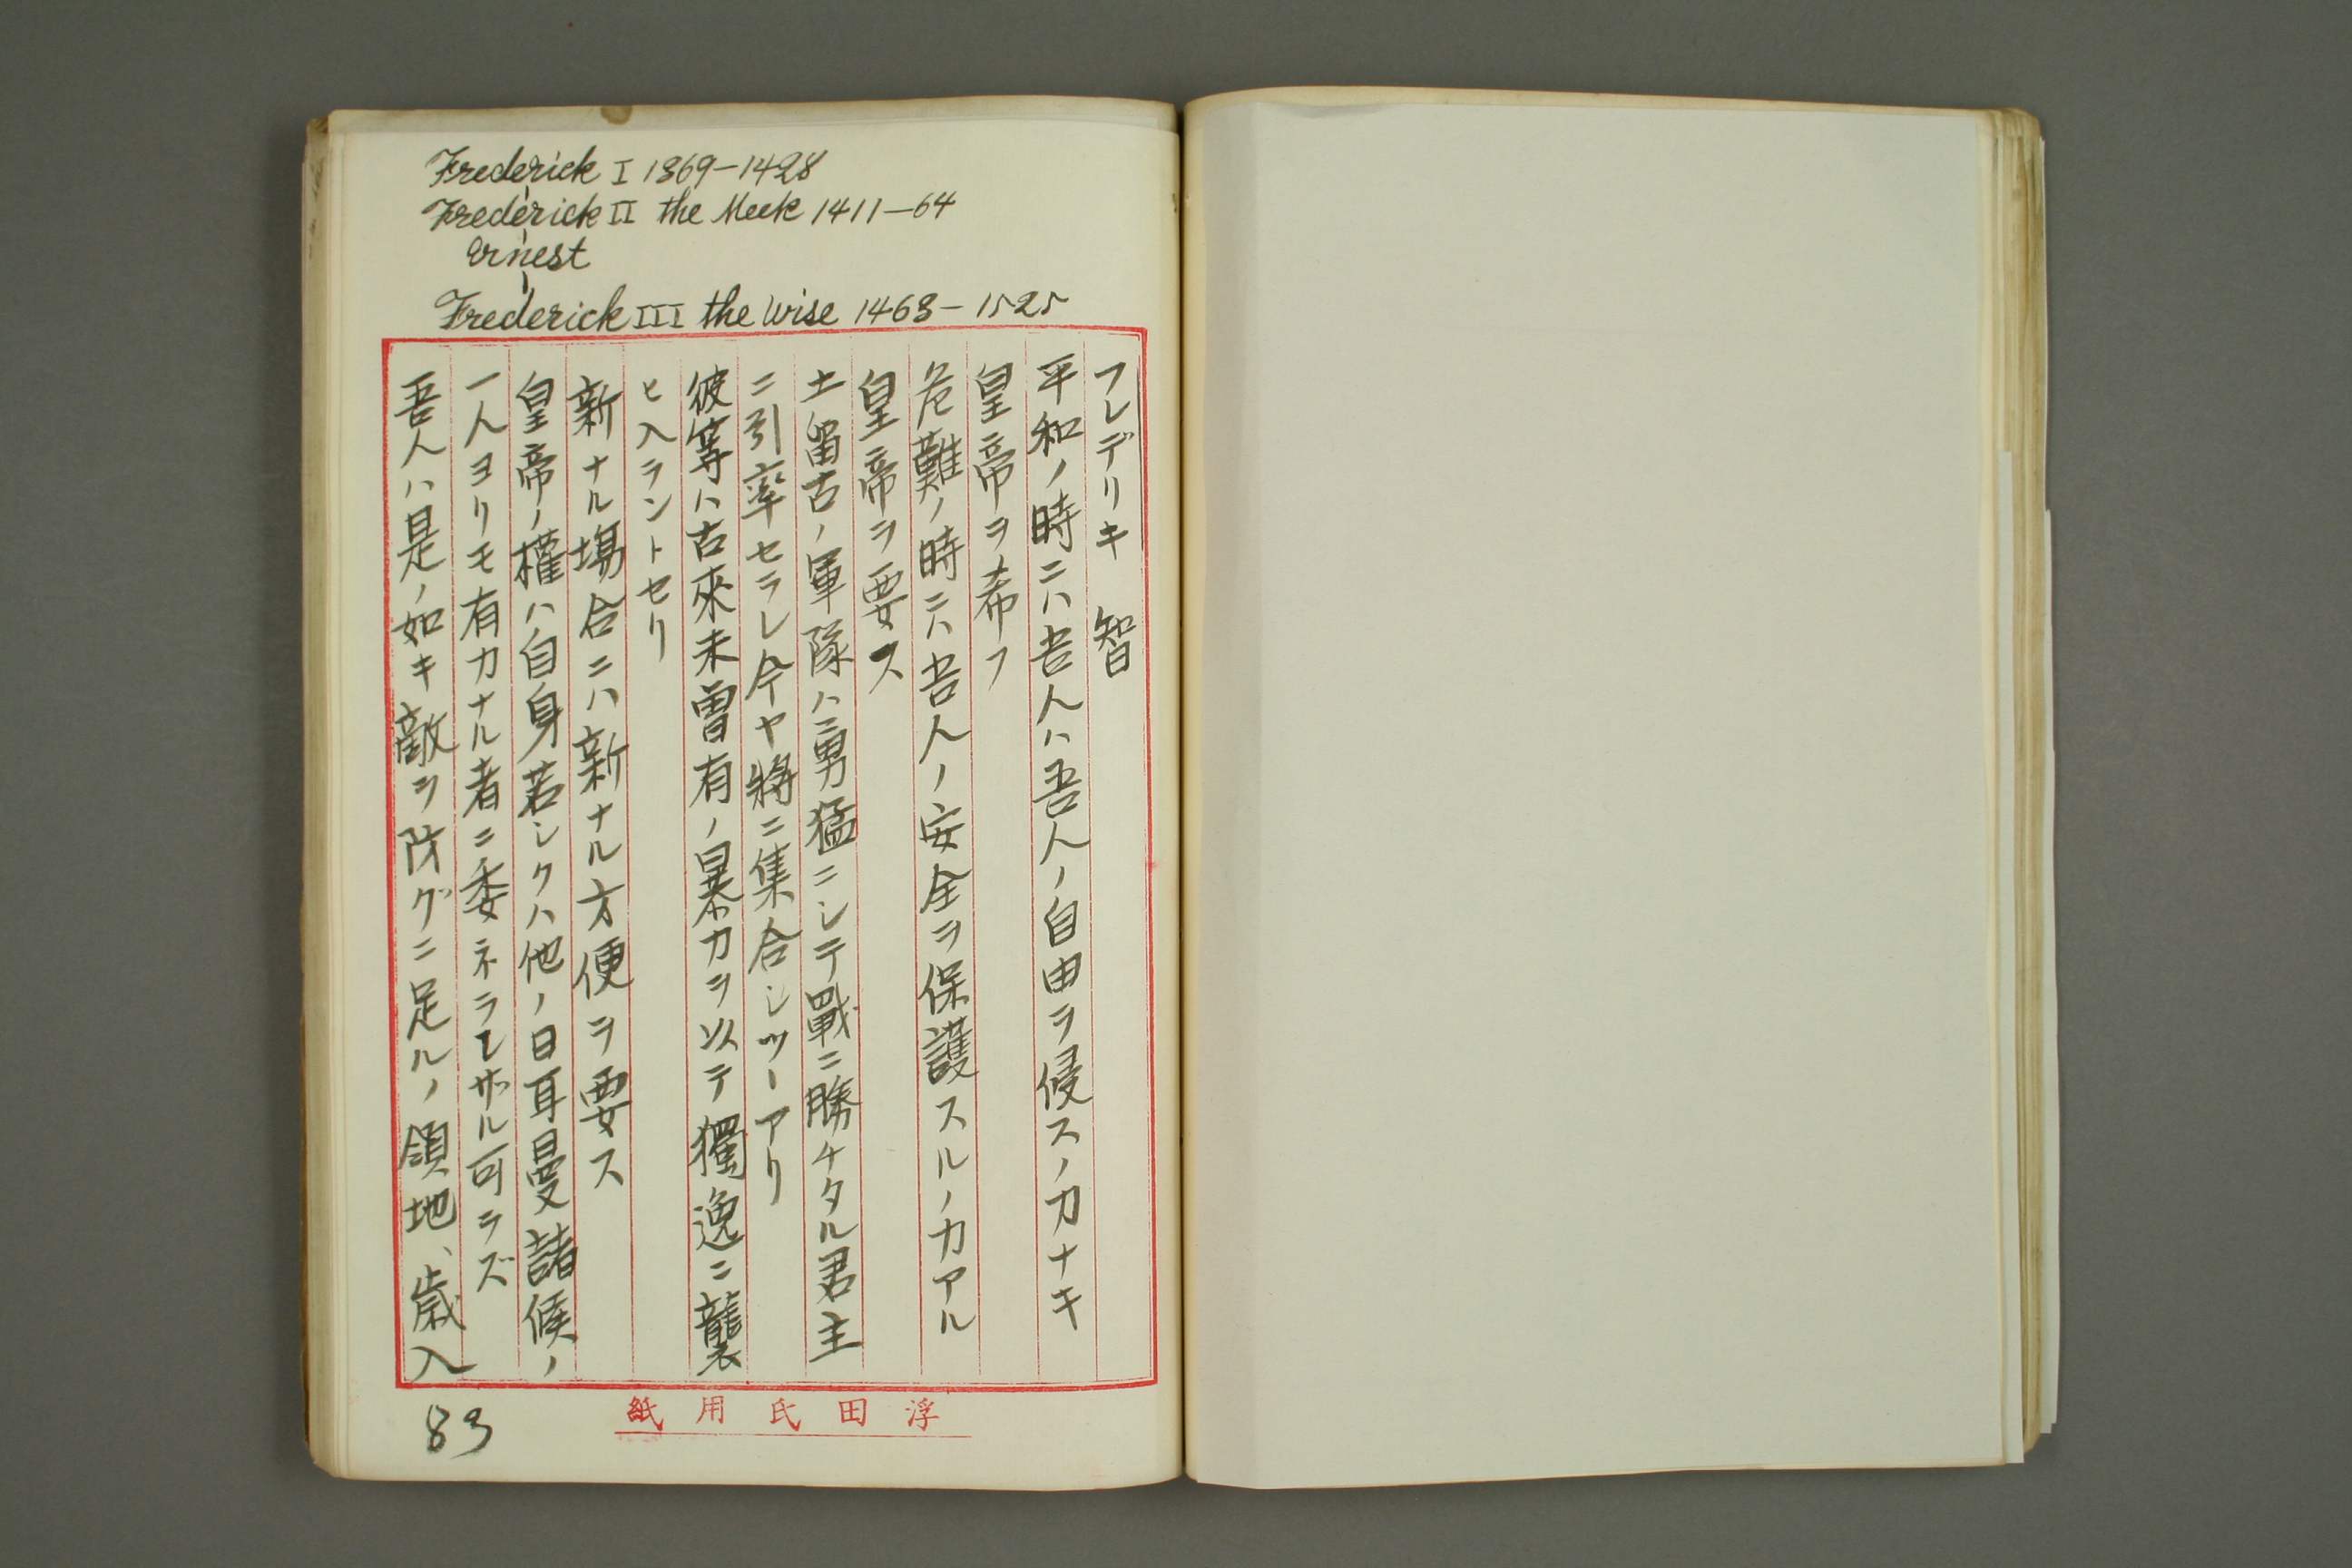 Frederick I 1369-1428
Frederick II the Meek 1411-64
Ernest
Frederick III the Wise 1463-1525
フレデリキ 智
平和ノ時ニハ吾人ハ吾人ノ自由ヲ侵スノ力ナキ
皇帝ヲ希フ
危難ノ時ニハ吾人ノ安全ヲ保護スルノ力アル
皇帝ヲ要ス
土留古ノ軍隊ハ勇猛ニシテ戰ニ勝チタル君主
ニ引率セラレ今ヤ將ニ集合シツーアリ
彼等ハ古來未曽有ノ暴力ヲ以テ獨逸ニ襲
ヒ入ラントセリ
新ナル塲合ニハ新ナル方便ヲ要ス
皇帝ノ權ハ自身若シクハ他ノ日耳曼諸候ノ
一人ヨリモ有力ナル者ニ委ネラレザル可ラズ
吾人ハ是ノ如キ敵ヲ防グニ足ルノ領地、歳入
浮田氏用紙
83